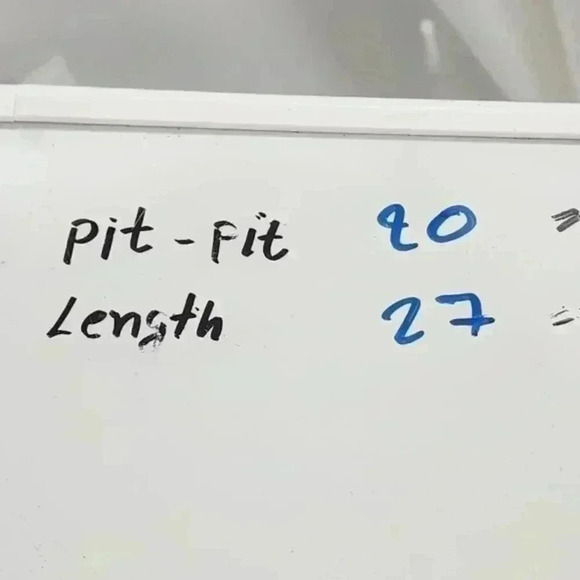 Pit - Fit 20 =
Length 27 =